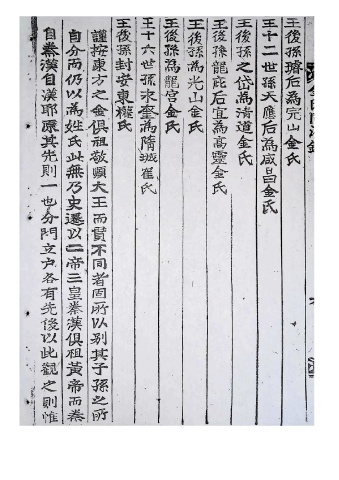 王後孫璿后為完山金氏
王十二世孫天應后為咸昌金氏
王後孫之岱為清道金氏
王後孫龍庇后宜為高靈金氏
王後孫為光山金氏
王後孫為龍宮金氏
王十六世孫永奎為隋城崔氏
王後孫封安東權氏
謹按東方之金俱祖敬順大王而貫不同者固所以別其子孫之所
自分而仍以為姓氏此無乃史遷以二帝三皇秦漢俱祖黃帝而秦
自秦漢自漢耶原其先則一也分門立戶各有先後以此觀之則惟